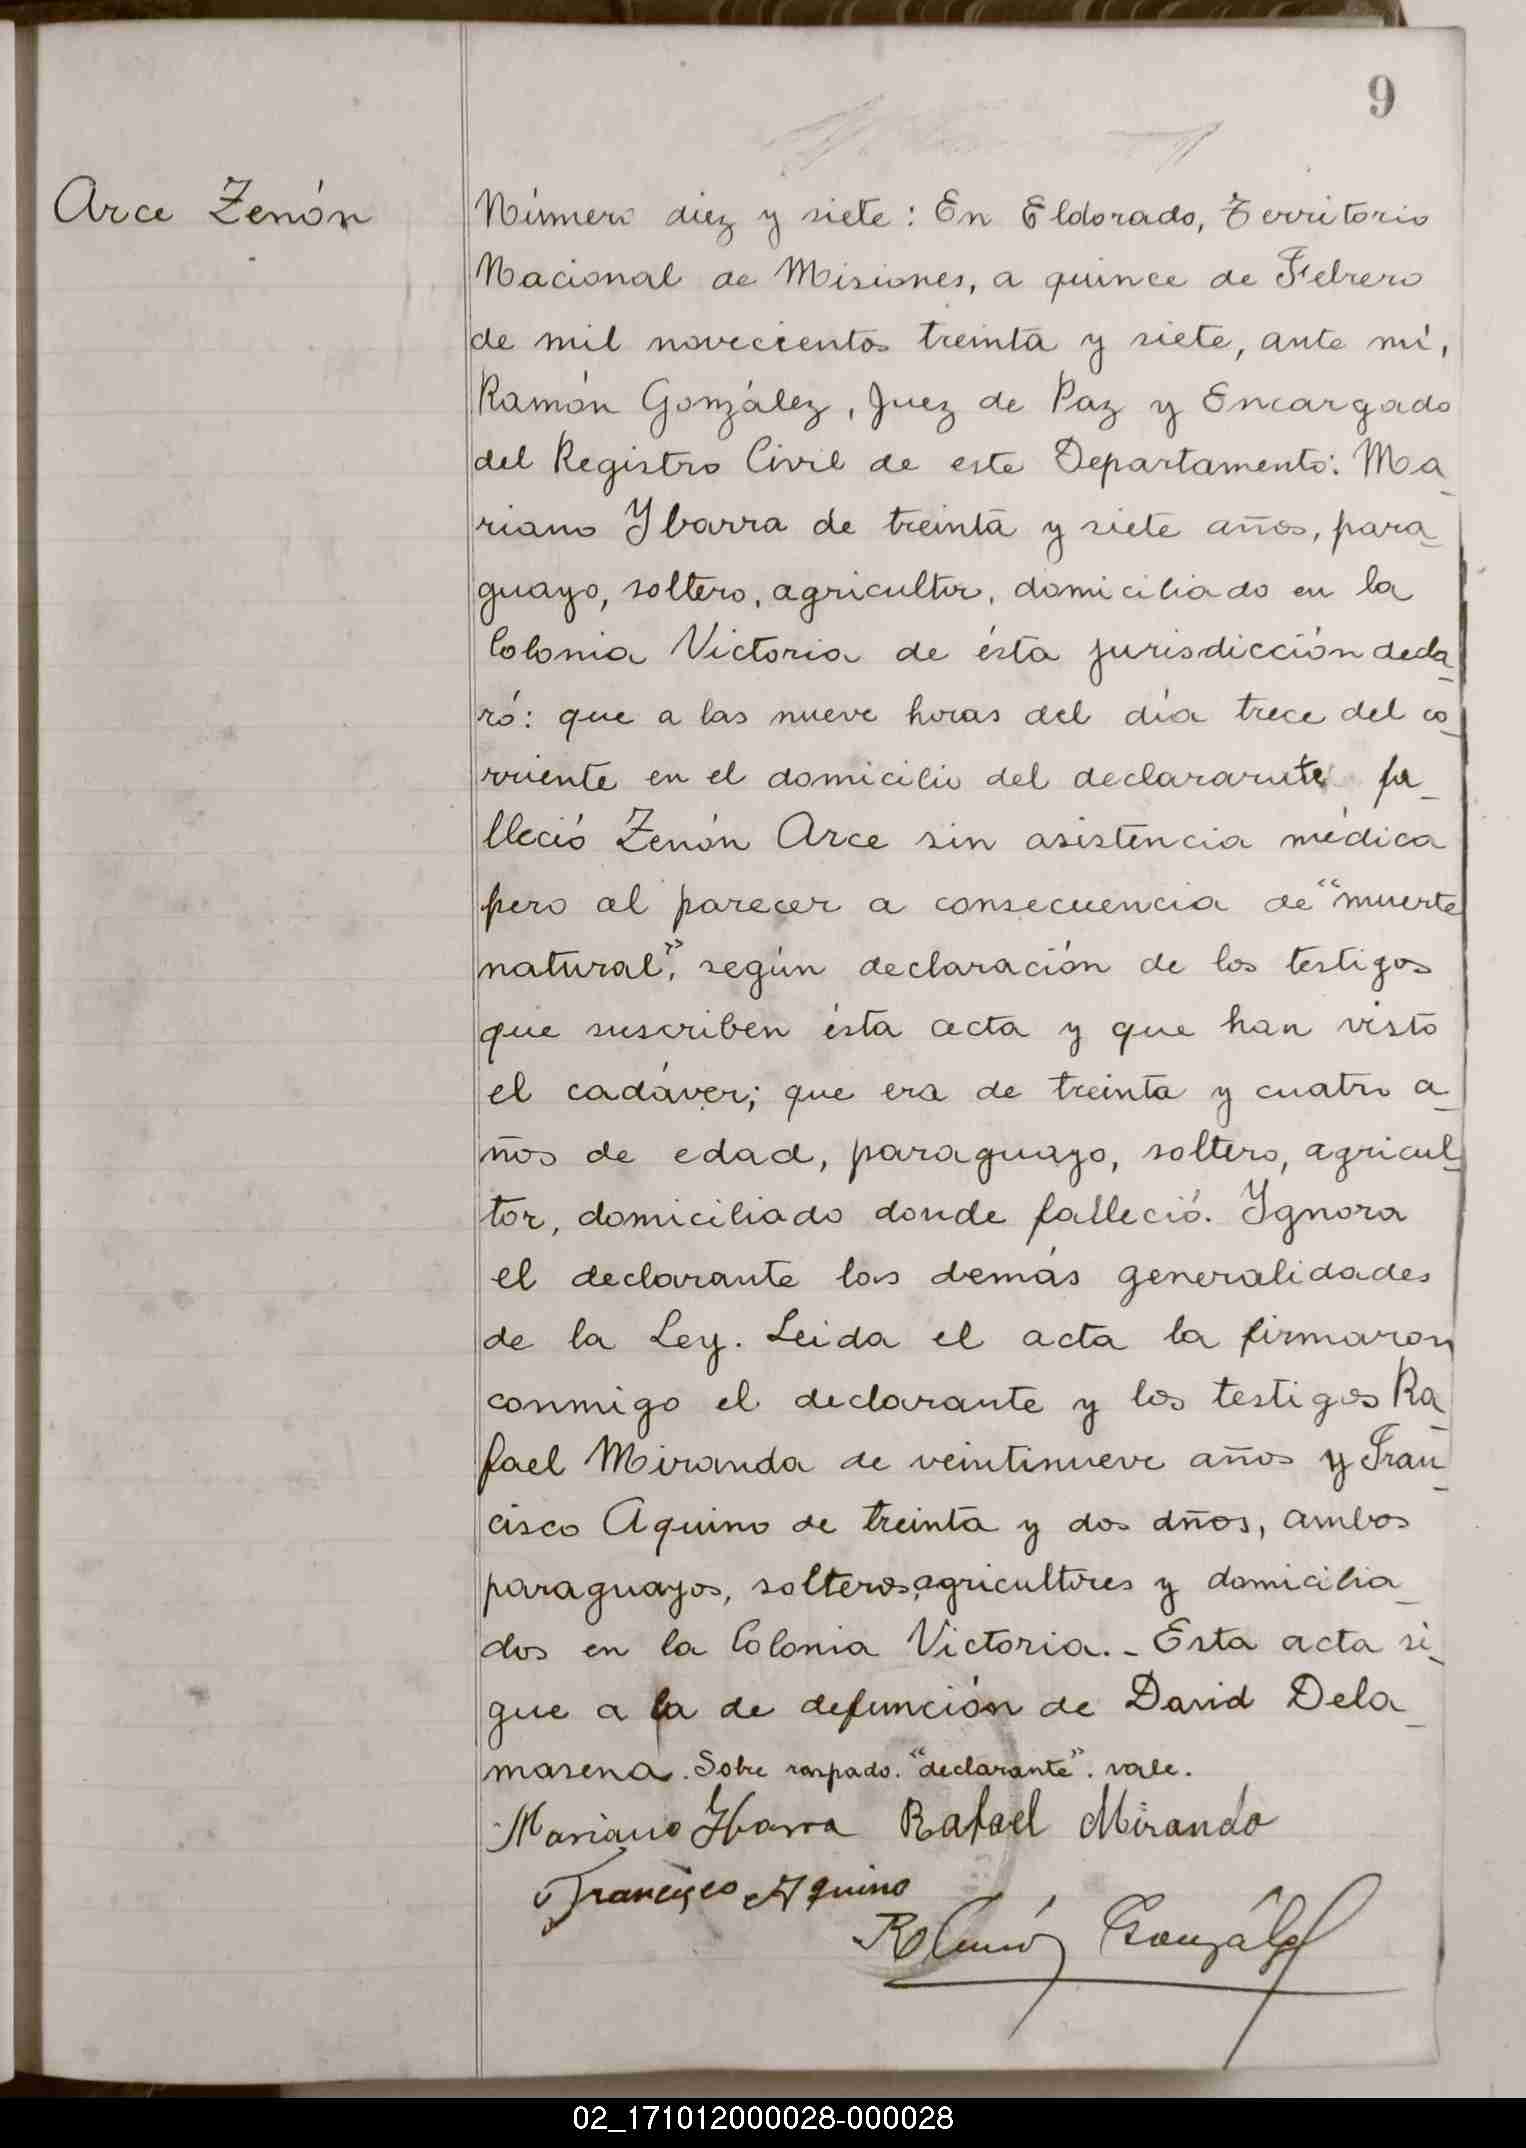 9
Arce Zenón
Número diez y siete: En Eldorado, Territorio
Nacional de Misiones, a quince de Febrero
de mil novecientos treinta y siete, ante mí,
Ramón González, Juez de Paz y Encargado
del Registro Civil de este Departamento: Ma-
riano Ybarra de treinta y siete años, para-
guayo, soltero, agricultor, domiciliado en la
Colonia Victoria de ésta jurisdicción decla-
ró: que a las nueve horas del día trece del co-
rriente en el domicilio del declarante fa-
lleció Zenón Arce sin asistencia médica
pero al parecer a consecuencia de "muerte
natural", según declaración de los testigos
que suscriben ésta acta y que han visto
el cadáver; que era de treinta y cuatro a-
ños de edad, paraguayo, soltero, agricul-
tor, domiciliado donde falleció. Ygnora
el declarante las demás generalidades
de la Ley. Leida el acta la firmaron
conmigo el declarante y los testigos Ra-
fael Miranda de veintinueve años y Fran-
cisco Aquino de treinta y dos años, ambos
paraguayos, solteros, agricultores y domicilia-
dos en la Colonia Victoria.- Esta acta si-
gue a la de defunción de David Dela-
masena. Sobre raspado. "declarante". vale.
Mariano Ybarra Rafael Miranda
Francisco Aquino
Ramón González
02_171012000028-000028